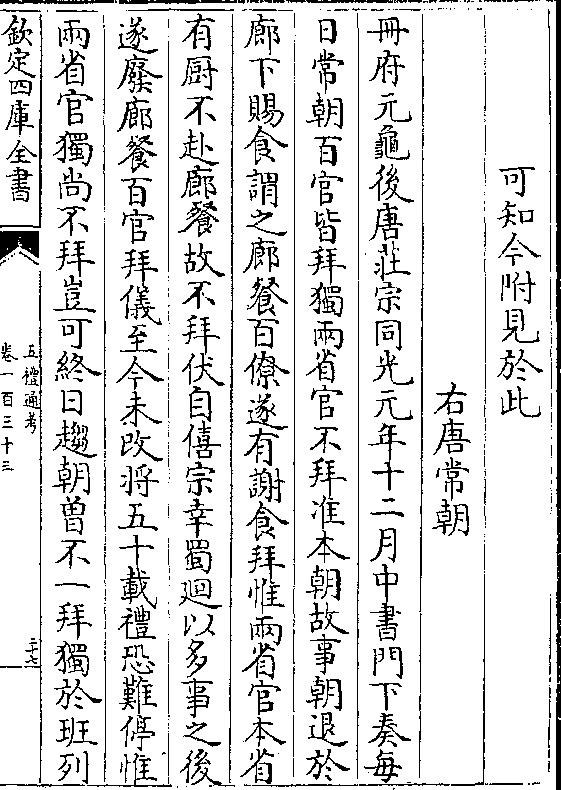 可知今附見於此
右唐常朝
冊府元龜後唐莊宗同光元年十二月中書門下奏每
日常朝百官皆拜獨兩省官不拜准本朝故事朝退於
廊下賜食謂之廊餐百僚遂有謝食拜惟兩省官本省
有厨不赴廊餐故不拜伏自僖宗幸蜀廻以多事之後
遂廢廊餐百官拜儀至今未改將五十載禮恐難停惟
兩省官獨尚不拜豈可終日趨朝曽不一拜獨於班列
欽定四庫全書
五禮通考
卷一百三十三
二十七